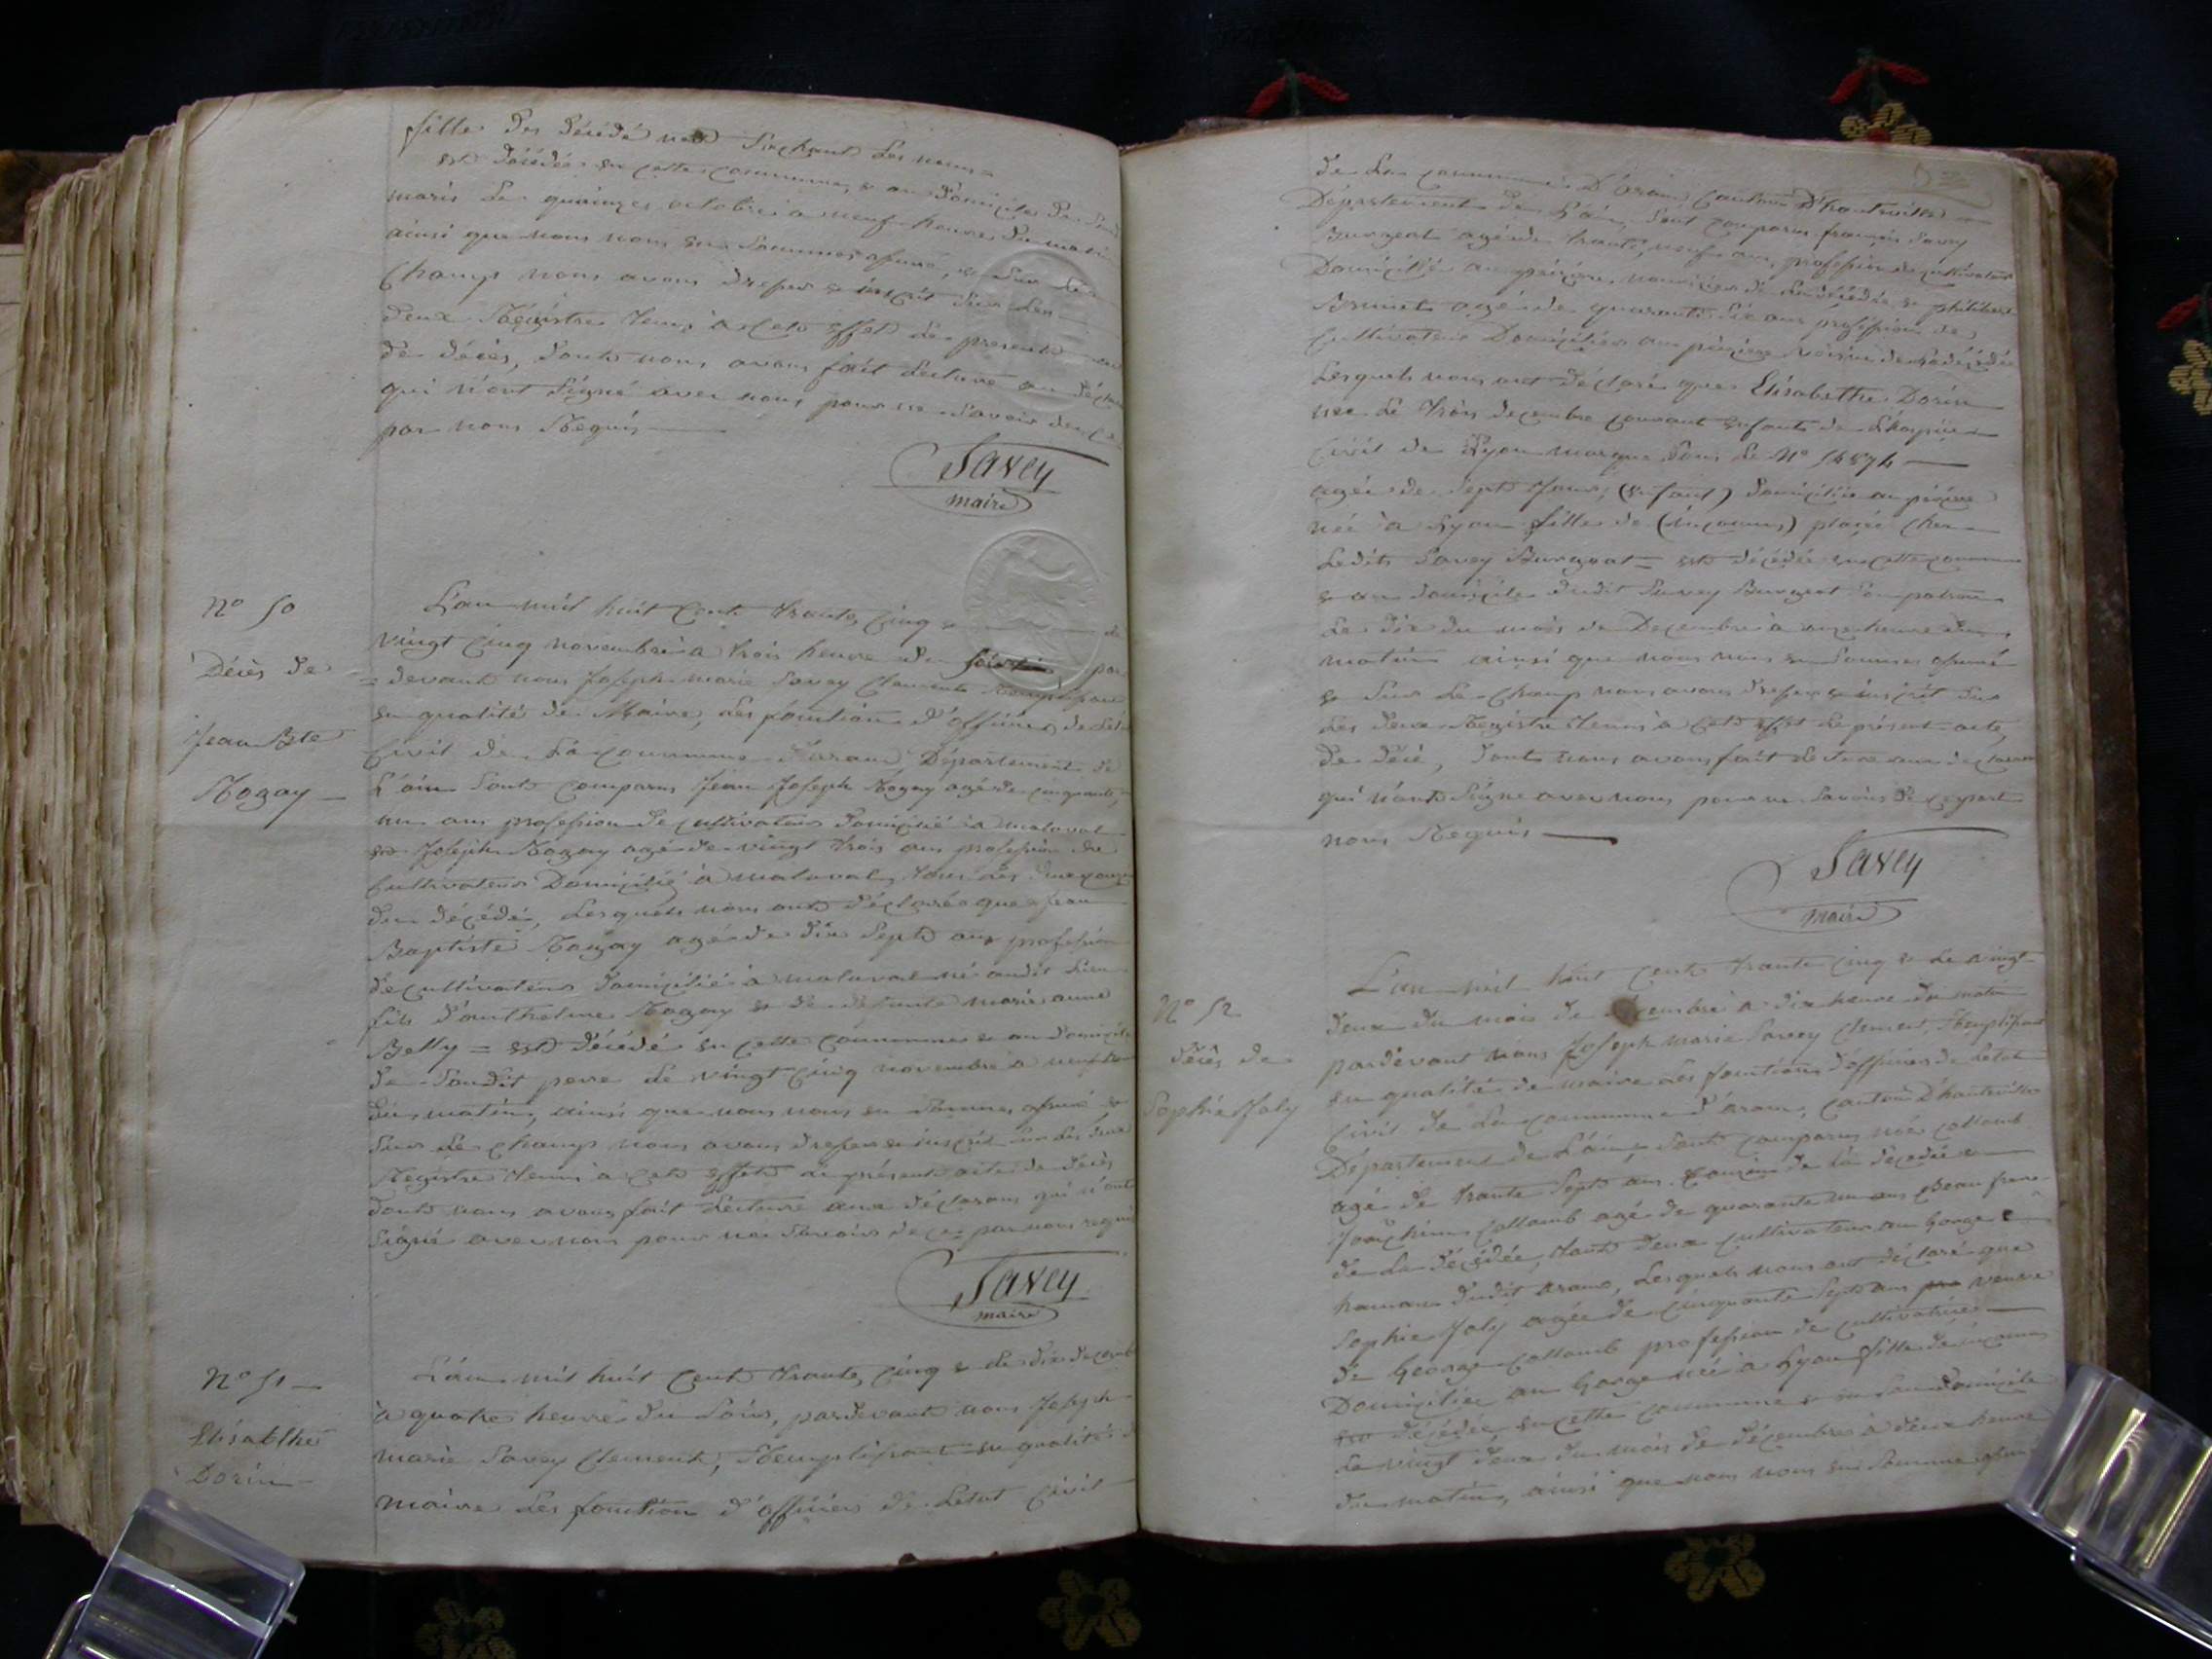 fille des décédé ne Sachant les noms
est décédée en cette commune, & au domicile de Son
maris le quinze octobre a neuf heures du matin
ainsi que nous nous en Sommes assuré, et Sur le
Champ nous avons dressé & inscrit Sur les
deux Régistre tenus à cet Effet le présent acte
de décès, dont nous avons fait lecture au
qui n'ont Signé avec nous pour ne Savoir de ce
par nous Requis
Savey
maire
N° 50
Décès de
Jean Bte
Rogay
L'an mil huit cent trante cinq & le
vingt cinq novembre à trois heure du Soir par
= devant nous Joseph marie Savey Clement Remplissant
en qualité de Maire, les fonction d'officier de l'état
Civil de la commune d'aranc, Département de
L'ain Sont comparus Jean Joseph Rogay agé de cinquante
un ans profession de cultivateur domicilié à malaval
et Joseph Rogay agé de vingt trois ans profession de
Cultivateur Domicilié à malaval, tous les deux
du décédé, Lesquels nous ont déclaré que Jean
Baptiste Rogay agé de dix Sept ans profession
de cultivateur domicilié à malaval né audit lieu
fils d'anthelme Rogay & de défunte marie anne
Belly = est décédé en cette commune & au domicile
de Sondit pere le vingt cinq novembre à neuf
du matin, ainsi que nous nous en Sommes assuré &
Sur le champ nous avons dressé & inscrit Sur les deux
Registre tenus à cet effet le présent acte de décès
dont nous avons fait lecture aux déclarans qui n'ont
Signé avec nous pour ne Savoir de ce par nous requis
Savey
maire
N° 51
Elisabethe
Dorin
L'an mil huit cent trante cinq & le dix decemb
à quatre heure du Soir, pardevant nous Joseph
marie Savey Clement, Remplissant en qualité de
maire les fonction d'officier de l'etat civil
de la commune D'aranc, Canton D'hauteville
Département de L'ain, Sont comparus françois Savey
Burgeat agé de trante neuf ans, profession de cultivateur
Domicilié nourricier de la décédée & philibert
Brunet agé de quarante Six ans profession de
Cultivateur Domicilié voisin de la décédée
Lesquels nous ont déclaré que Elisabethe Dorin
née le trois decembre courant enfant de L'hospice
civil de Lyon marque Sous le N° 14874
agée de Sept Jours, (enfant) domicilié
née à Lyon fille de (inconnus) placée chez
Ledit Savey Burgeat = est décédée en cette commune
& au domicile dudit Savey Burgeat Son patron
Le dix du mois de Decembre à onze heure du
matin ainsi que nous nous en Sommes assuré
& Sur le champ nous avons dressé & inscrit Sur
Les deux Registre tenus à cet effet le présent acte
de décé, dont nous avons fait lecture aux déclarans
qui n'ont Signé avec nous pour ne Savoir de ce par
nous Requis
Savey
maire
N° 52
décès de
Sophie Joly
L'an mil huit cent trante cinq & le vingt
deux du mois de Décembre à dix heure du matin
pardevant nous Joseph marie Savey Clement, Remplissant
en qualité de maire les fonctions d'officier de l'etat
Civil de la commune d'aranc, canton D'hauteville
Département de L'ain, Sont comparus noé collomb
agé de trante Sept ans cousin de la décedée &
Joachim Collomb agé de quarante un ans Beau frere
de la décedée, tout deux cultivateur au Gorge
hameau dudit aranc, Lesquels nous ont déclaré que
Sophie Joly agée de cinquante Sept ans veuve
de George Collomb profession de cultivatrice
Domiciliée au Gorge née à Lyon fille de inconnus
est décédée en cette commune & en Son domicile
Le vingt deux du mois de décembre à deux heure
du matin, ainsi que nous nous en Somme assu